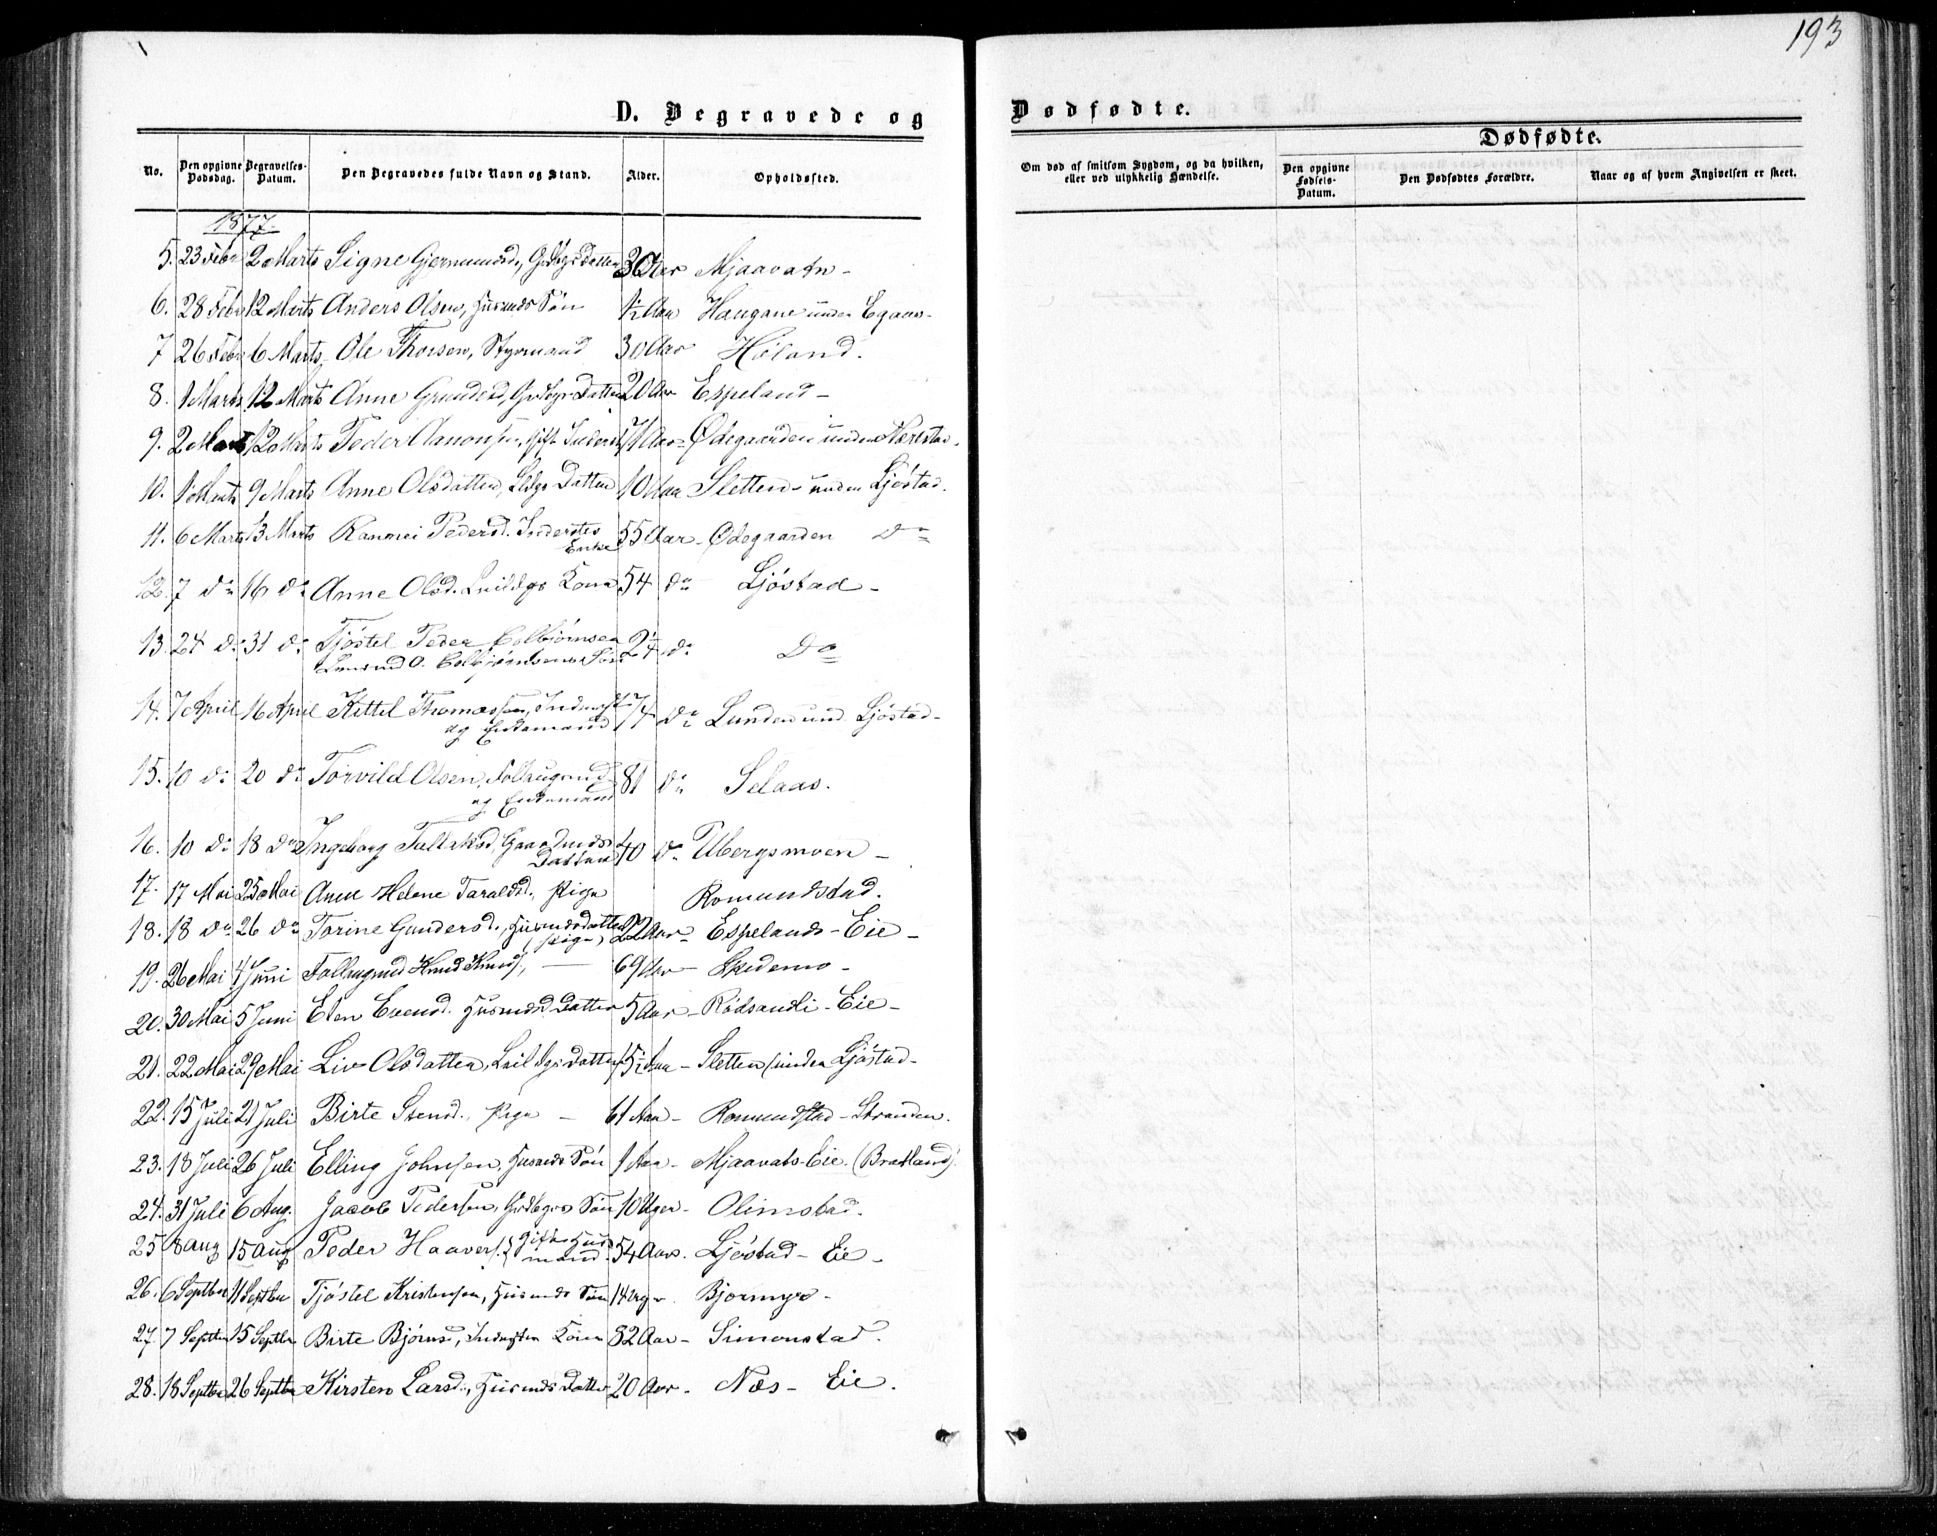 193
D. Begravede og Dødfødte.
Dødfødte.
No. Den opgivne Dødsdag. Begravelses-Datum. Den Begravedes fulde Navn og Stand. Alder. Opholdssted. Om død af smitsom Sygdom, og da hvilken, eller ved ulykkelig Hændelse. Den opgivne Fødsels-Datum. Den Dødfødtes Forældre. Naar og af hvem Angivelsen er skeet.
1877.
5. 23 Febr 2 Marts Signe Gjermundsd, Datter Aar Mjaavatn -
6. 28 Febr 12 Marts Anders Olsen, Husmds Søn 1/2 Aar Haugane under Egaas -
7 26 Febr 6 Marts Ole Thorsen, Styrmand 30 Aar Høland.
8. 1 Marts 12 Marts Anne Gundersd, Datter 20 Aar Espeland -
9. 2 Marts 12 Marts Peder Aanonsen, gift Inderst 71 Aar - Ødegaarden under Nærestad.
10. 1 Marts 9 Marts Anne Olsdatter, Datter 10 Aar Sletten under Ljøstad.
11. 6 Marts 13 Marts Ranmei Pedersd. Inderstes Enke 55 Aar - Ødegaarden do
12. 7 do 16 do Anne Olsd. Kone 54 do Ljøstad -
13. 24 do 31 do Tjøstel Peder Colbjørnsen
O. Colbjørnsens Søn 2 1/4 do Do
14. 7 April 16 April Kittel Thomassen, Inderst
og Enkemand 74 do Lunden und. Ljøstad -
15. 10 do 20 do Torvild Olsen, Føderaugmd
og Enkemand 81 do Selaas.
16. 10 do 18 do Ingeborg Tallaksd, Gaardmds
Datter 40 do Ubergsmoen -
17. 17 Mai 25 Mai Anne Helene Taraldsd., Pige Romundstad.
18. 18 do 26 do Torine Gundersd., Husmdsdatter
(Pige) 22 Aar - Espelands - Eie -
19. 26 Mai 4 Juni Knud Knuds, — 69 Aar - Skedemo -
20. 30 Mai 5 Juni Elen Evensd. Husmds Datter 5 Aar - Rødsandli - Eie -
21. 22 Mai 29 Mai Liv Olsdatter, Datter Aar - Sletten (under Ljøstad -
22. 15 Juli 21 Juli Birte Stensd., Pige - 61 Aar - Romundstad - Stranden.
23. 18 Juli 26 Juli Elling Johnsen, Husmds Søn 1 Aar - Mjaavats-Eie. (Bratland).
24. 31 Juli 6 Aug. Jacob Pedersen, Søn 10 Uger - Olimstad.
25 8 Aug 15 Aug Peder Haavers. gift Husmand 54 Aar. Ljøstad - Eie -
26. 6 Septber 11 Septbr Tjøstel Kristensen, Husmds Søn Bjormyr -
27. 7 Septbr 15 Septbr Birte Bjørns, Inderstes Kone 82 Aar - Simonstad.
28. 18 Septbr 26 Septbr Kirsten Larsd., Husmds Datter 20 Aar - Næs - Eie.